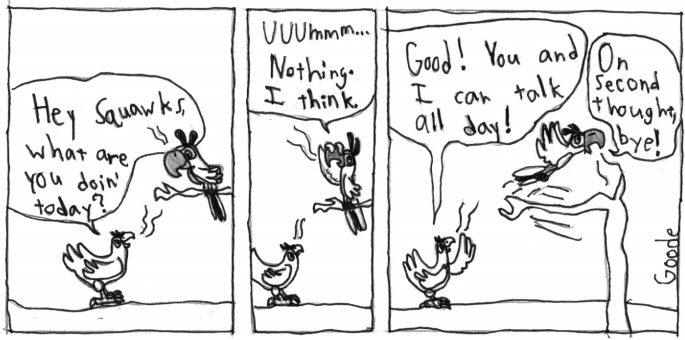 Hey Squawks,
what are
you doin'
today?
UUUmmm...
Nothing.
I think.
Good! You and
I can talk
all day!
On
second
thought,
bye!
Goode